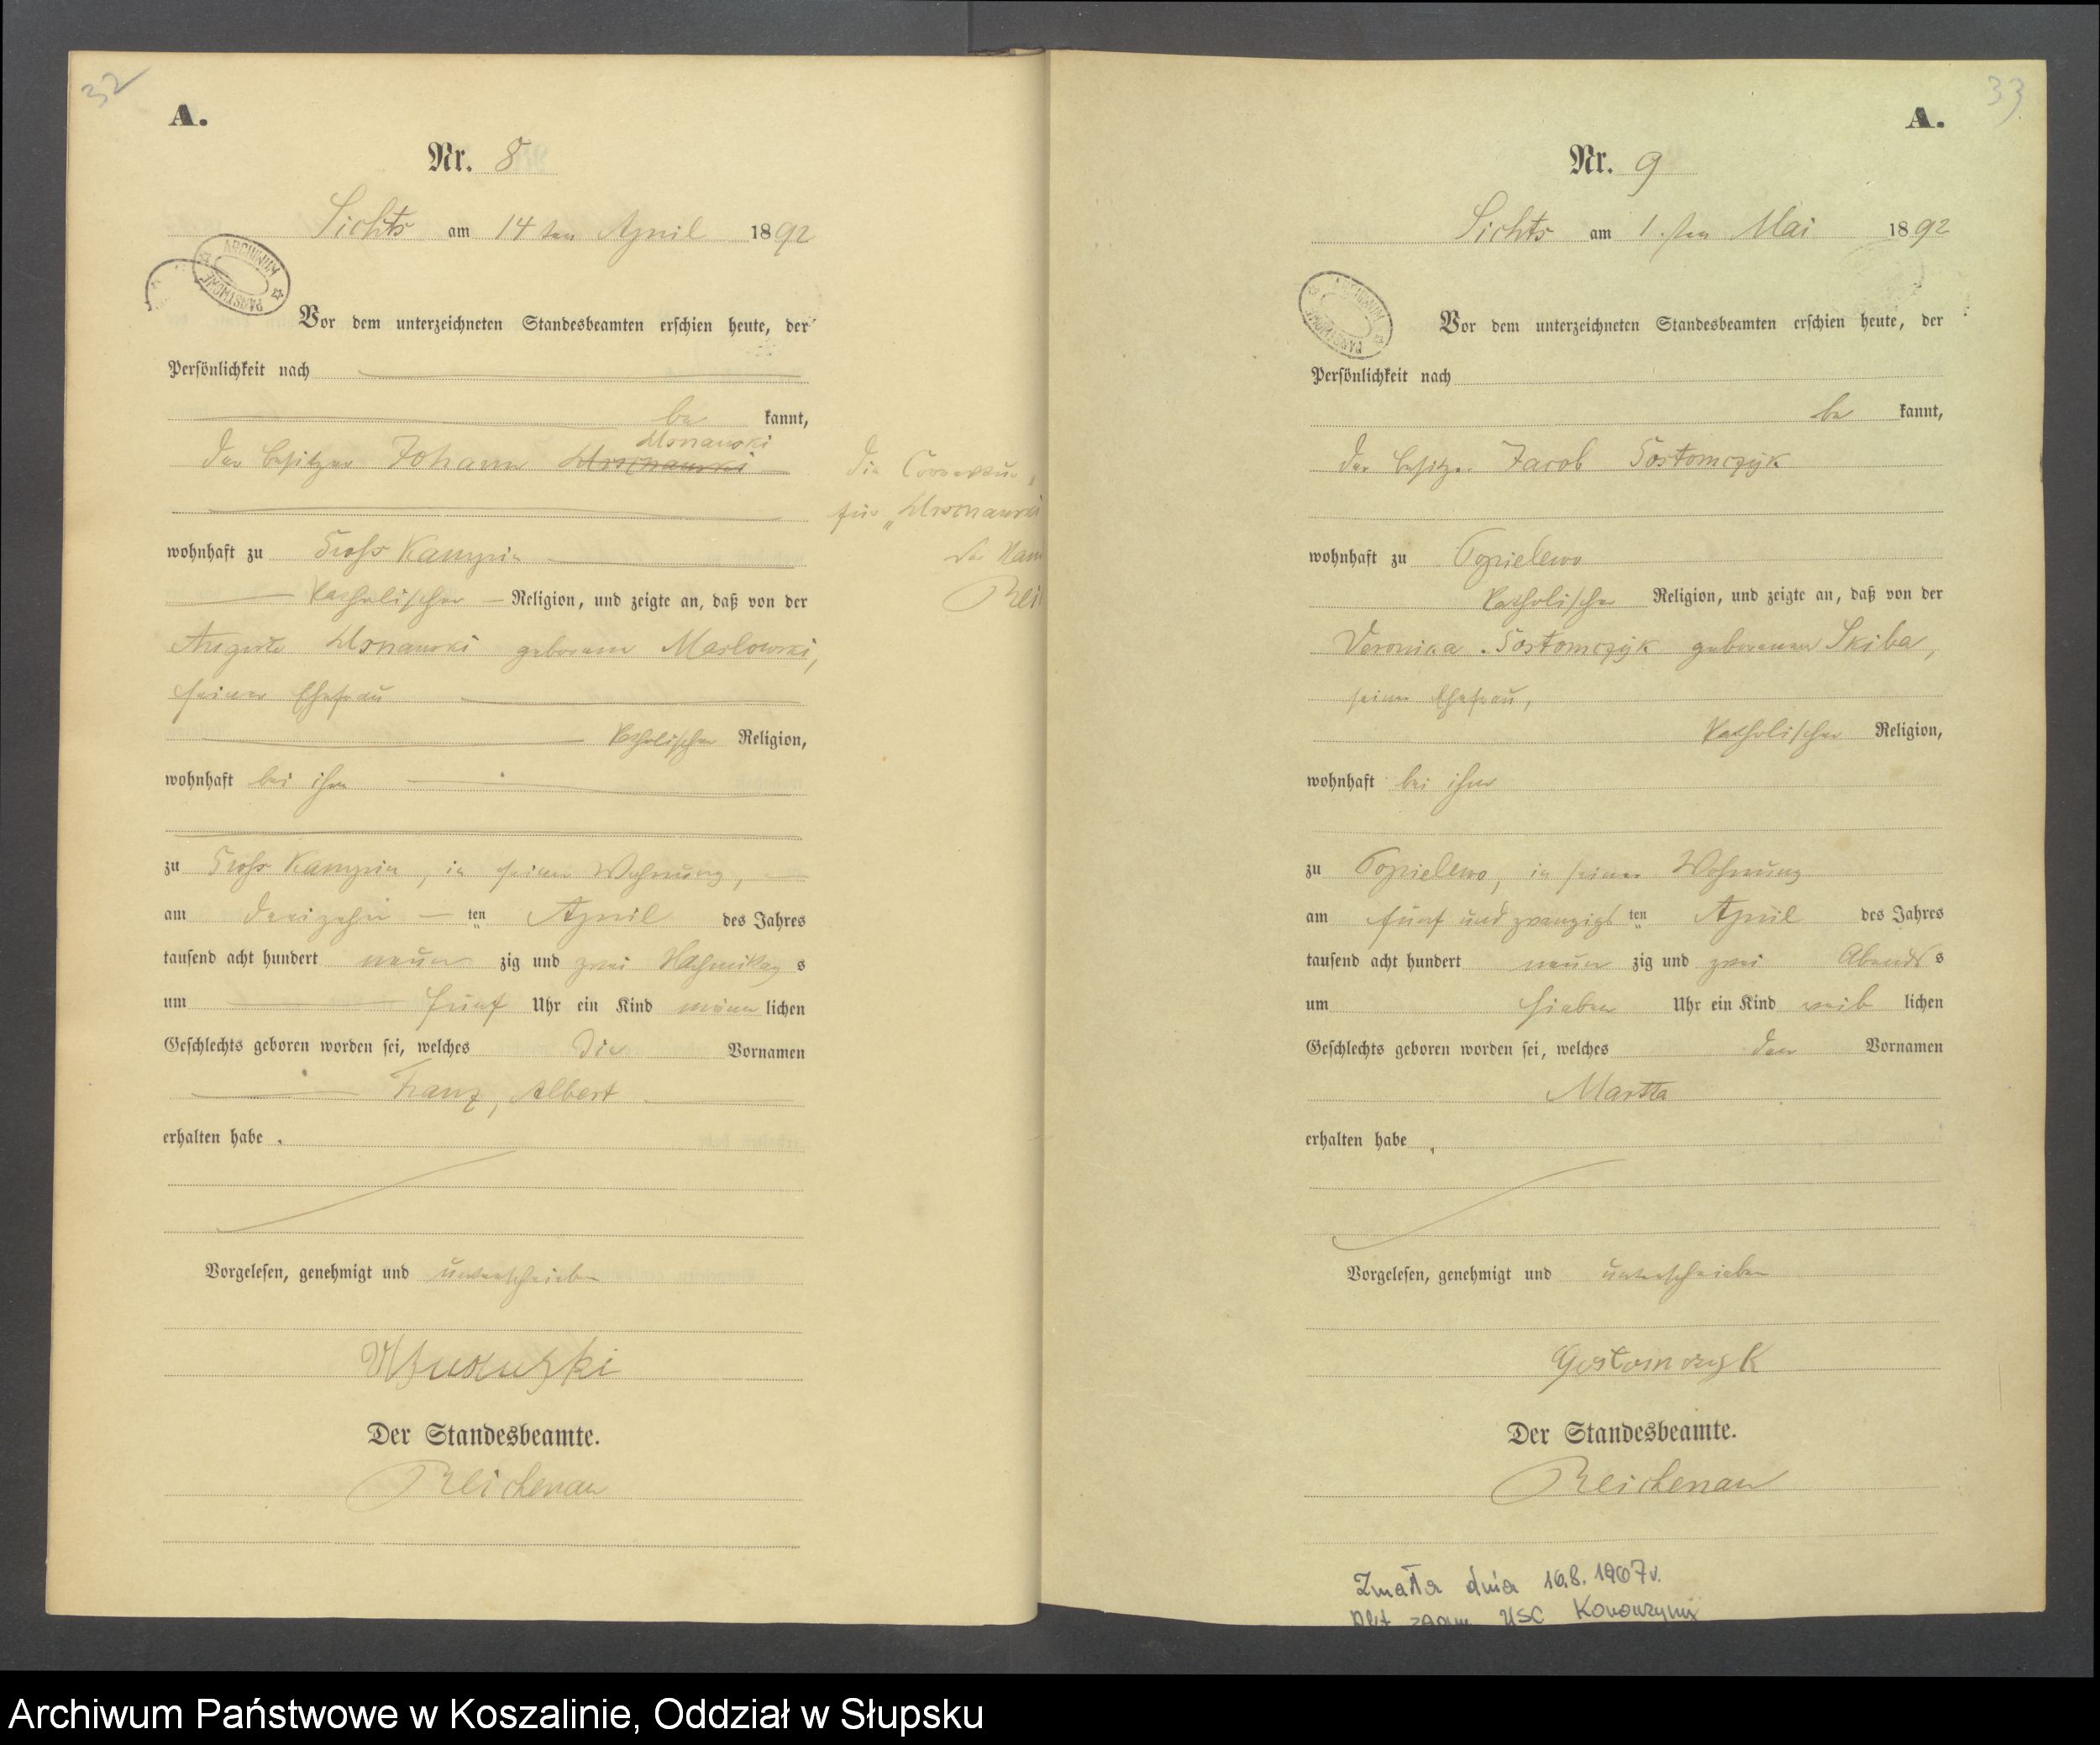 32
A.
Nr. 8
Sichts am 14 ten April 1892
ARCHIWUM PAŃSTWOWE
Vor dem unterzeichneten Standesbeamten erschien heute, der
Persönlichkeit nach
be kannt,
der Besitzer Johann
wohnhaft zu Gross Kampin
katholischer Religion, und zeigte an, daß von der
Auguste geborene Maslowski,
seiner Ehefrau
katholischer Religion,
wohnhaft bei ihm
zu Gross Kampin, in seiner Wohnung,
am dreizehn ten April des Jahres
tausend acht hundert neun zig und zwei Nachmittag s
um fünf Uhr ein Kind männ lichen
Geschlechts geboren worden sei, welches die Vornamen
Franz, Albert
erhalten habe.
Vorgelesen, genehmigt und unterschrieben
Der Standesbeamte.
Reichenau
Die
für
33
A.
Nr. 9
Sichts am 1. ten Mai 1892
ARCHIWUM PAŃSTWOWE
Vor dem unterzeichneten Standesbeamten erschien heute, der
Persönlichkeit nach
be kannt,
der Besitzer Jacob Gostomczyk
wohnhaft zu Topielewo
katholischer Religion, und zeigte an, daß von der
Veronica Gostomczyk geborenen Skiba,
seiner Ehefrau,
katholischer Religion,
wohnhaft bei ihm
zu Topielewo, in seiner Wohnung
am fünf und zwanzigs ten April des Jahres
tausend acht hundert neun zig und zwei Abends s
um sieben Uhr ein Kind weib lichen
Geschlechts geboren worden sei, welches den Vornamen
Martha
erhalten habe.
Vorgelesen, genehmigt und unterschrieben
Gostomczyk
Der Standesbeamte.
Reichenau
Zmarła dnia 16.8.1967r.
Akt zgonu USC Konarzyny
Archiwum Państwowe w Koszalinie, Oddział w Słupsku